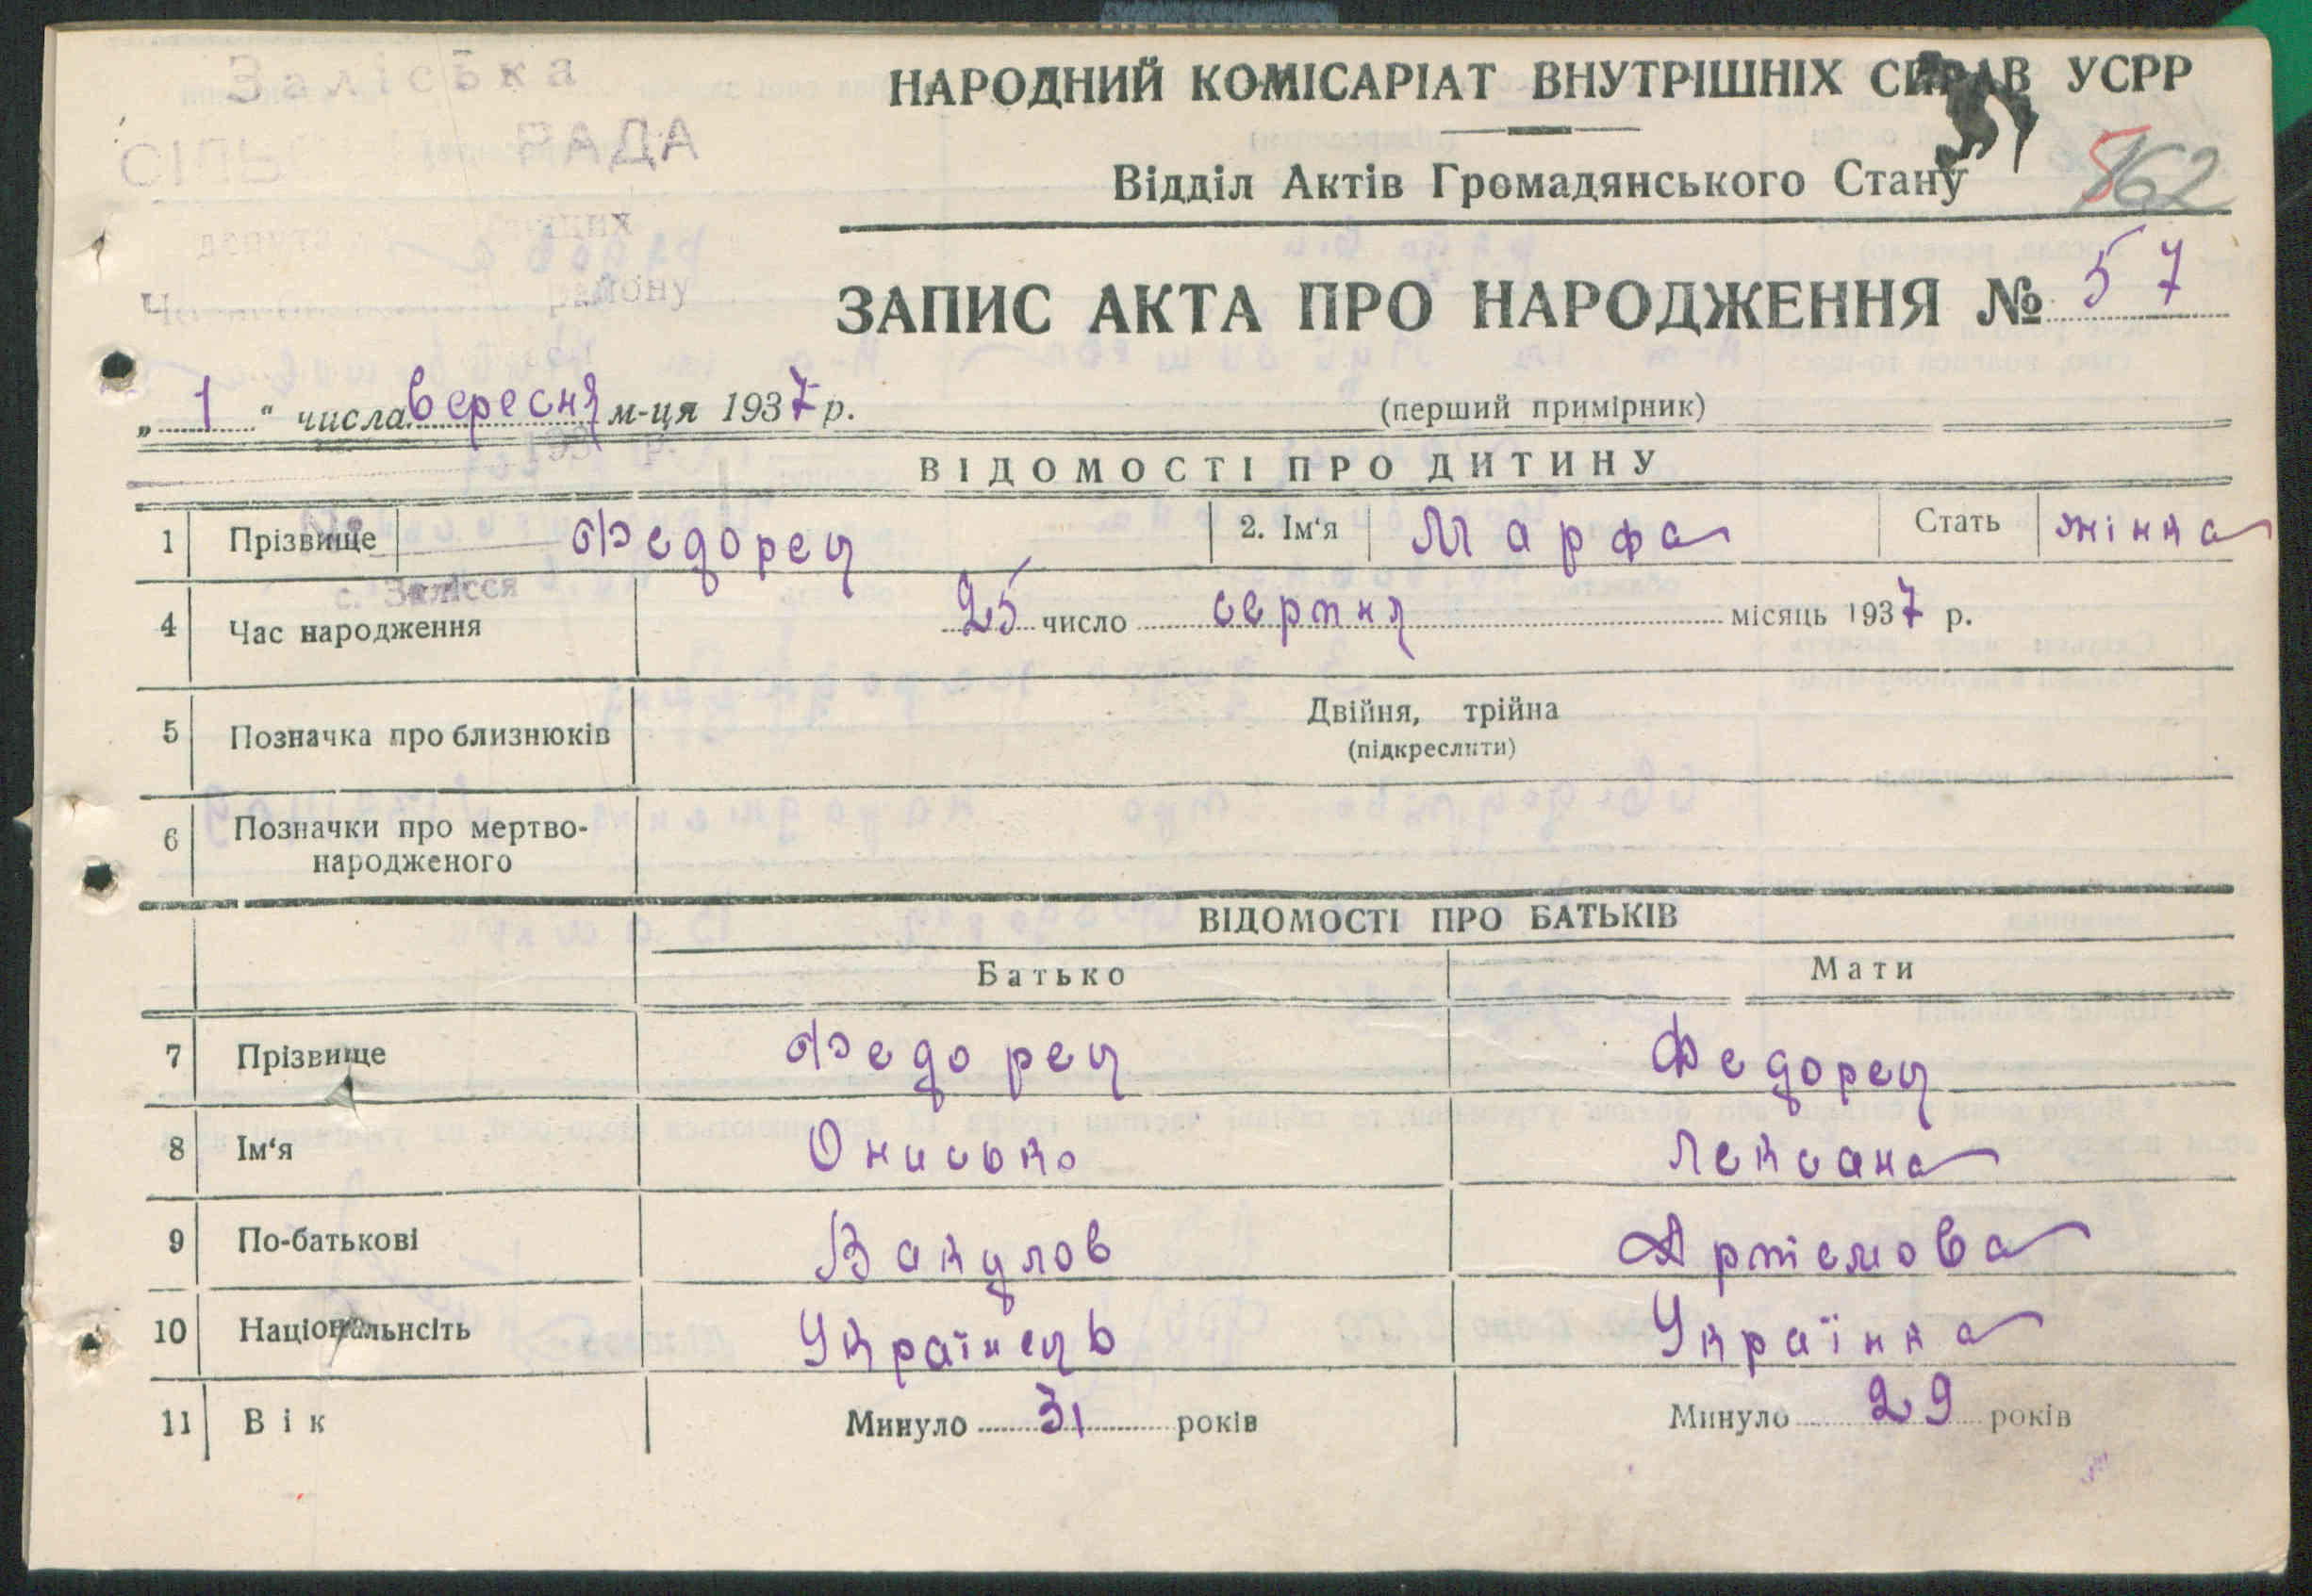 Заліська
РАДА
району
НАРОДНИЙ КОМІСАРІАТ ВНУТРІШНІХ СПРАВ УСРР
Відділ Актів Громадянського Стану
162
ЗАПИС АКТА ПРО НАРОДЖЕННЯ № 57
„ 1 “ числа вересня м-ця 1937 р.
(перший примірник)
ВІДОМОСТІ ПРО ДИТИНУ
1 Прізвище Федорец 2. Ім‘я Марфа Стать жінка
с. Залісся
4 Час народження 25 число серпня місяць 1937 р.
5 Позначка про близнюків Двійня, трійна
(підкреслити)
6 Позначки про мертво-
народженого
ВІДОМОСТІ ПРО БАТЬКІВ
Батько Мати
7 Прізвище Федорец Федорец
8 Ім‘я Онисько Лексана
9 По-батькові Вакулов Артемова
10 Національнсіть Українець Українка
11 Вік Минуло 31 років Минуло 29 років